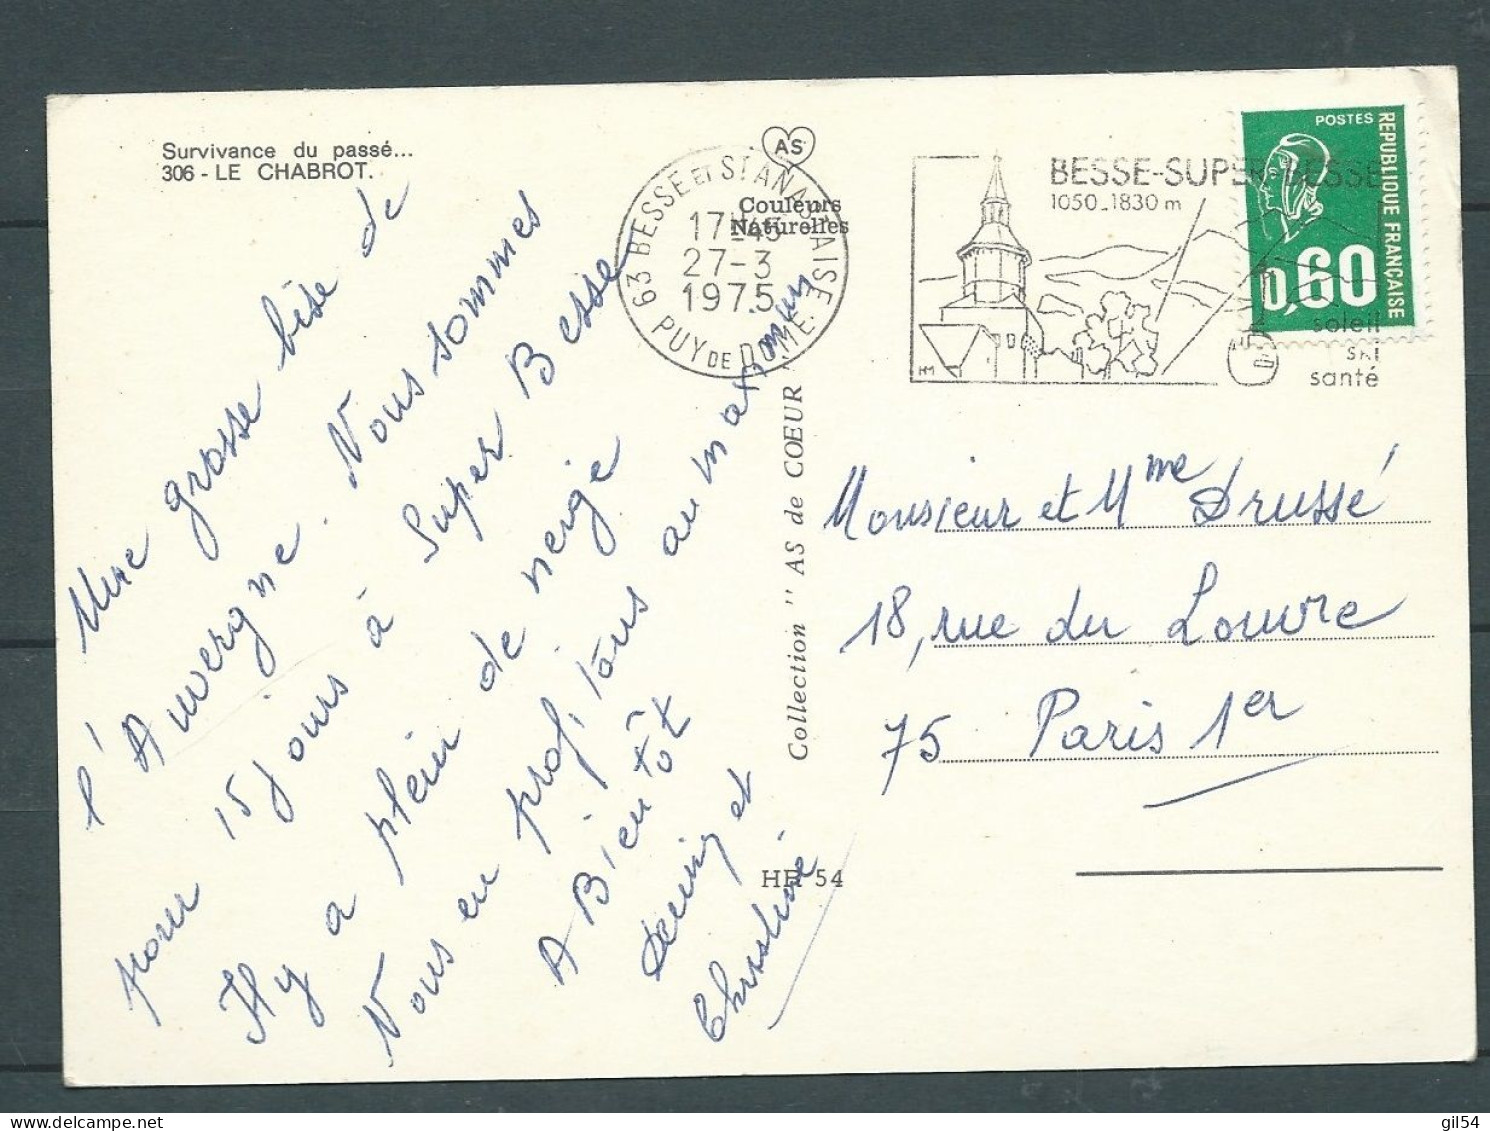 Survivance du passé...
306 - LE CHABROT.
AS
Couleurs
Naturelles
63 BESSE ET ST ANASTAISE
17H45
27-3
1975
PUY DE DOME
BESSE-SUPER-BESSE
1050_1830 m
soleil
ski
santé
HM
POSTES
REPUBLIQUE FRANÇAISE
0,60
Une grosse bise de
l'Auvergne. Nous sommes
pour 15 jours à Super Besse
Il y a plein de neige
Nous en profitons au maximum
A Bientôt
et
Christine
Collection " AS de CŒUR "
HR 54
Monsieur et Mme Drussé
18, rue du Louvre
75 Paris 1er
gil54